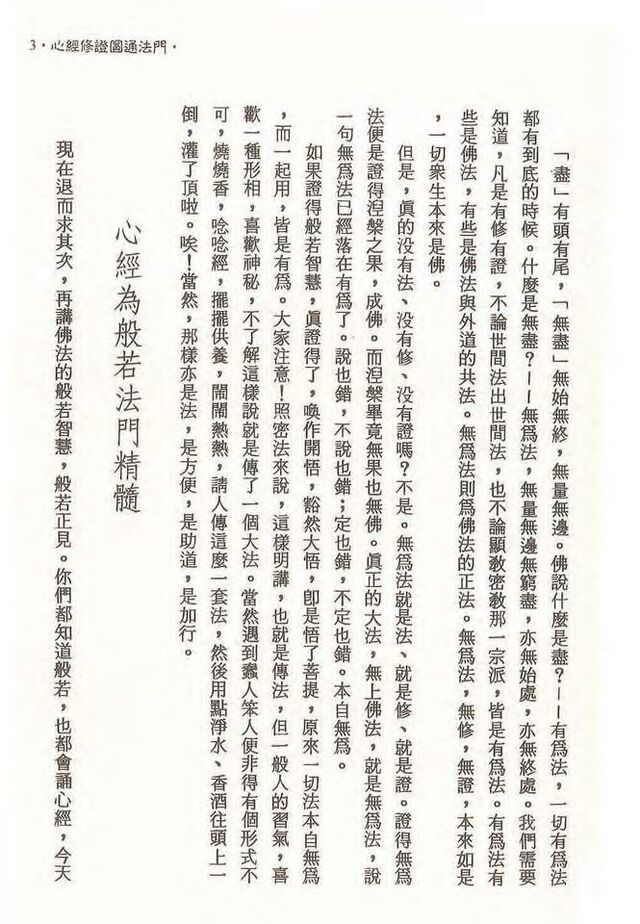 3．心經修證圓通法門．
「盡」有頭有尾，「無盡」無始無終，無量無邊。佛說什麼是盡？——有為法，一切有為法
都有到底的時候。什麼是無盡？——無為法，無量無邊無窮盡，亦無始處，亦無終處。我們需要
知道，凡是有修有證，不論世間法出世間法，也不論顯教密教那一宗派，皆是有為法。有為法有
些是佛法，有些是佛法與外道的共法。無為法則為佛法的正法。無為法，無修，無證，本來如是
，一切衆生本來是佛。
但是，眞的没有法、没有修、没有證嗎？不是。無為法就是法、就是修、就是證。證得無為
法便是證得涅槃之果，成佛。而涅槃畢竟無果也無佛。眞正的大法，無上佛法，就是無為法，說
一句無為法已經落在有為了。說也錯，不說也錯；定也錯，不定也錯。本自無為。
如果證得般若智慧，眞證得了，喚作開悟，豁然大悟，卽是悟了菩提，原來一切法本自無為
，而一起用，皆是有為。大家注意！照密法來說，這樣明講，也就是傳法，但一般人的習氣，喜
歡一種形相，喜歡神秘，不了解這樣說就是傳了一個大法。當然遇到蠢人笨人便非得有個形式不
可，燒燒香，唸唸經，擺擺供養，鬧鬧熱熱，請人傳這麼一套法，然後用點淨水、香酒往頭上一
倒，灌了頂啦。唉！當然，那樣亦是法，是方便，是助道，是加行。
心經為般若法門精髓
現在退而求其次，再講佛法的般若智慧，般若正見。你們都知道般若，也都會誦心經，今天